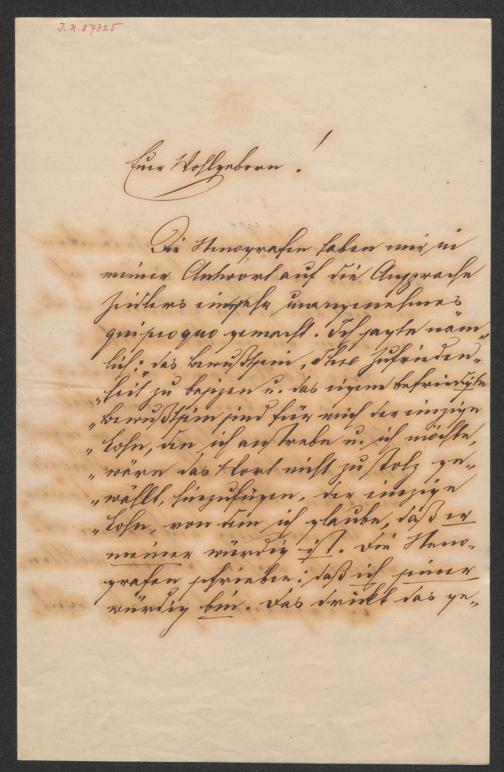 I.N. 67325
Euer Wohlgeborn!
Die Stenografen haben mir in
meiner Antwort auf die Ansprache
Zedlers ein sehr unangenehmes
quiproquo gemacht. Ich sagte näm-
lich: „das Bewußtsein, Ihre Zufrieden-
„heit zu besizen u. das eigene befriedigte
„Bewußtsein sind für mich der einzige
„Lohn, den ich anstrebe u. ich möchte,
„wäre das Wort nicht zu stolz ge-
„wählt, hinzufügen, der einzige
„Lohn, von dem ich glaube, daß er
meiner würdig ist. Die Steno-
grafen schrieben: daß ich seiner
würdig bin. Das drückt das ge-